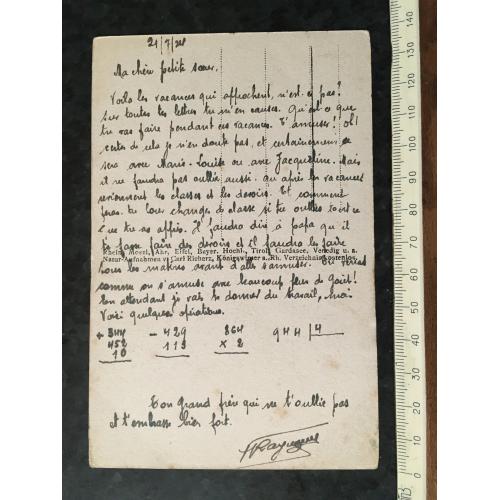 21/7/28
Ma chère petite sœur,
Voilà les vacances qui approchent, n'est-ce pas?
Sur toutes les lettres tu m'en causes. Qu'est-ce que
tu vas faire pendant ces vacances. T'amuser! Oh!
certes de cela je n'en doute pas, et certainement ce
sera avec Marie-Louise ou avec Jacqueline. Mais
il ne faudra pas oublier aussi qu'après les vacances
reviennent les classes et les devoirs. Et comment
feras-tu pour changer de classe si tu oublies tout ce
que tu as appris. Il faudra dire à papa qu'il
te fasse faire des devoirs et il faudra les faire
Rhein, Mosel, Ahr, Eifel, Bayer. Hochl., Tirol, Gardasee, Venedig u. a.
Natur-Aufnahmen v. Carl Richerz, Königswinter a. Rh. Verzeichnis kostenlos.
tous les matins avant d'aller s'amuser. Tu verras
comme on s'amuse avec beaucoup plus de goût!
En attendant je vais te donner du travail, moi.
Voici quelques opérations.
+ 344 - 429 864 944 | 4
452 113 × 2
10
Ton grand frère qui ne t'oublie pas
et t'embrasse bien fort.
140
130
120
110
100
90
80
70
60
50
40
30
20
10